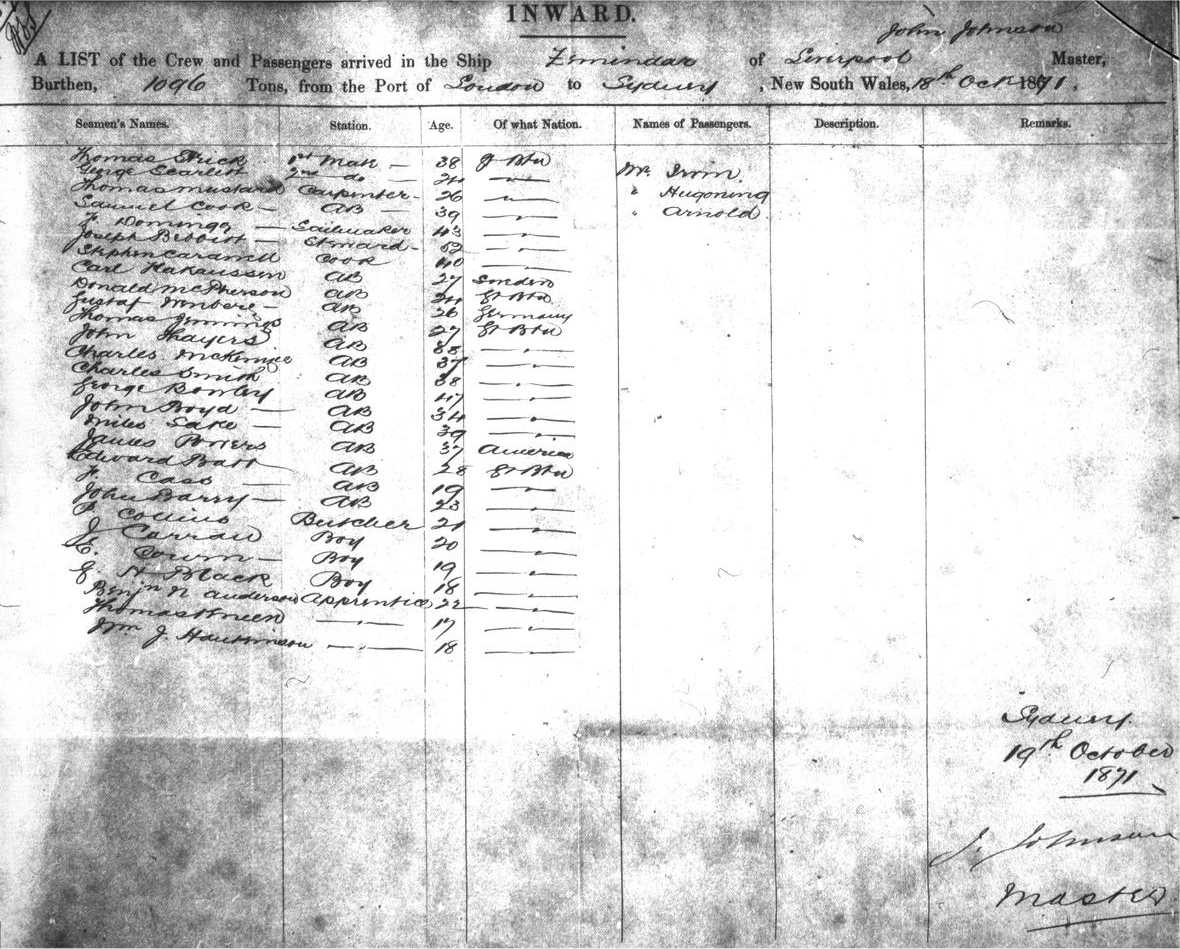 INWARD.
John Johnson
A LIST of the Crew and Passengers arrived in the Ship Zemindar of Liverpool Master,
Burthen, 1096 Tons, from the Port of London to Sydney, New South Wales, 18th Oct 1871.
Seamen's Names. Station. Age. Of what Nation. Names of Passengers. Description. Remarks.
Thomas 1st Mate — 38 G Btn Mr. Irwin
George Scarlett 2nd do — — " —
Thomas Mustard Carpenter - 26 — " — " Hugoning
Samuel Cook — AB — 39 — " — " Arnold
Domingo — Sailmaker 43 — " —
Joseph Steward - 52 — " —
Stephen Cook 40 — " —
Carl AB 27
Donald McPherson AB Gt Btn
Gustaf AB 26 Germany
Thomas Jennings AB 27 Gt Btn
John Thayers AB — " —
Charles McKenzie AB 37 — " —
Charles Smith AB 38 — " —
George Bowley AB 47 — " —
John Boyd — AB 34 — " —
Miles — AB 39 — " —
James Powers AB 37 America
Edward Batt AB 28 Gt Btn
Cass — AB 19 — " —
John Barry — AB 23 — " —
Collins Butcher 21 — " —
J Curran Boy 20 — " —
E. — Boy 19 — " —
H Black Boy 18 — " —
Benjn N Anderson Apprentice 22 — " —
Thomas — " — 17 — " —
Wm J. — " — 18 — " —
Sydney
19th October
1871
J. Johnson
Master